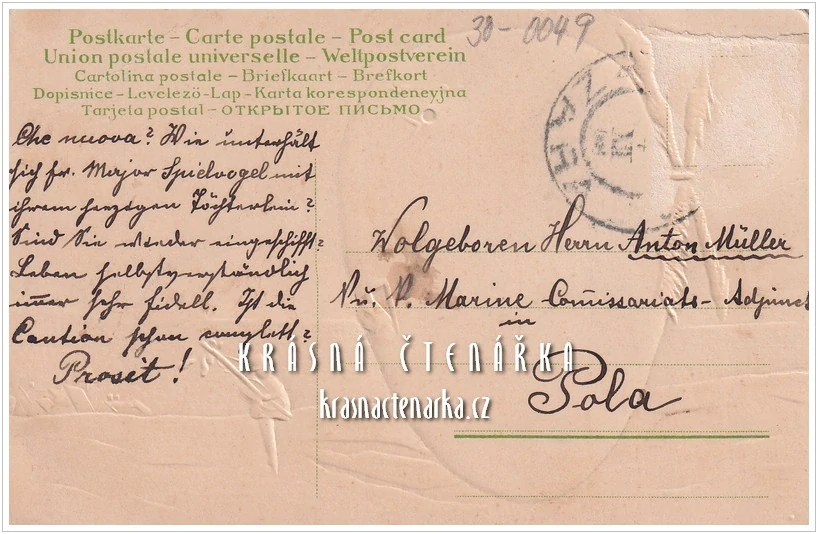 30-0049
Postkarte – Carte postale – Post card
Union postale universelle – Weltpostverein
Cartolina postale – Briefkaart – Brefkort
Dopisnice – Levelező-Lap – Karta korespondencyjna
Tarjeta postal – ОТКРЫТОЕ ПИСЬМО
Che nuova? Wie unterhält
sich fr. Major Spielvogel mit
ihrem herzigen Töchterlein?
Sind Sie wieder eingeschifft?
Leben selbstverständlich
immer sehr fidell. Ist die
Caution schon complett?
Prosit!
Wolgeboren Herrn Anton Müller
K. u. K. Marine Comissariats-Adjunct
in
Pola
KRÁSNÁ ČTENÁŘKA
krasnactenarka.cz